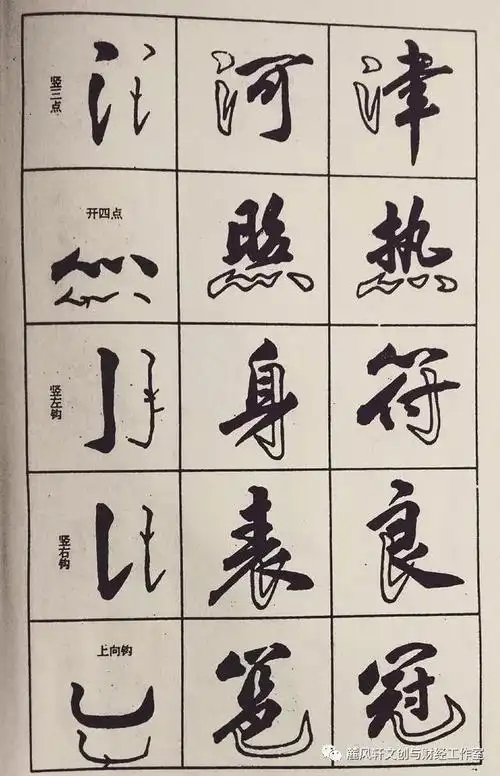 竖三点 河 津
开四点 照 热
竖左钩 身 符
竖右钩 表 良
上向钩 冠
麓风轩文创与财经工作室